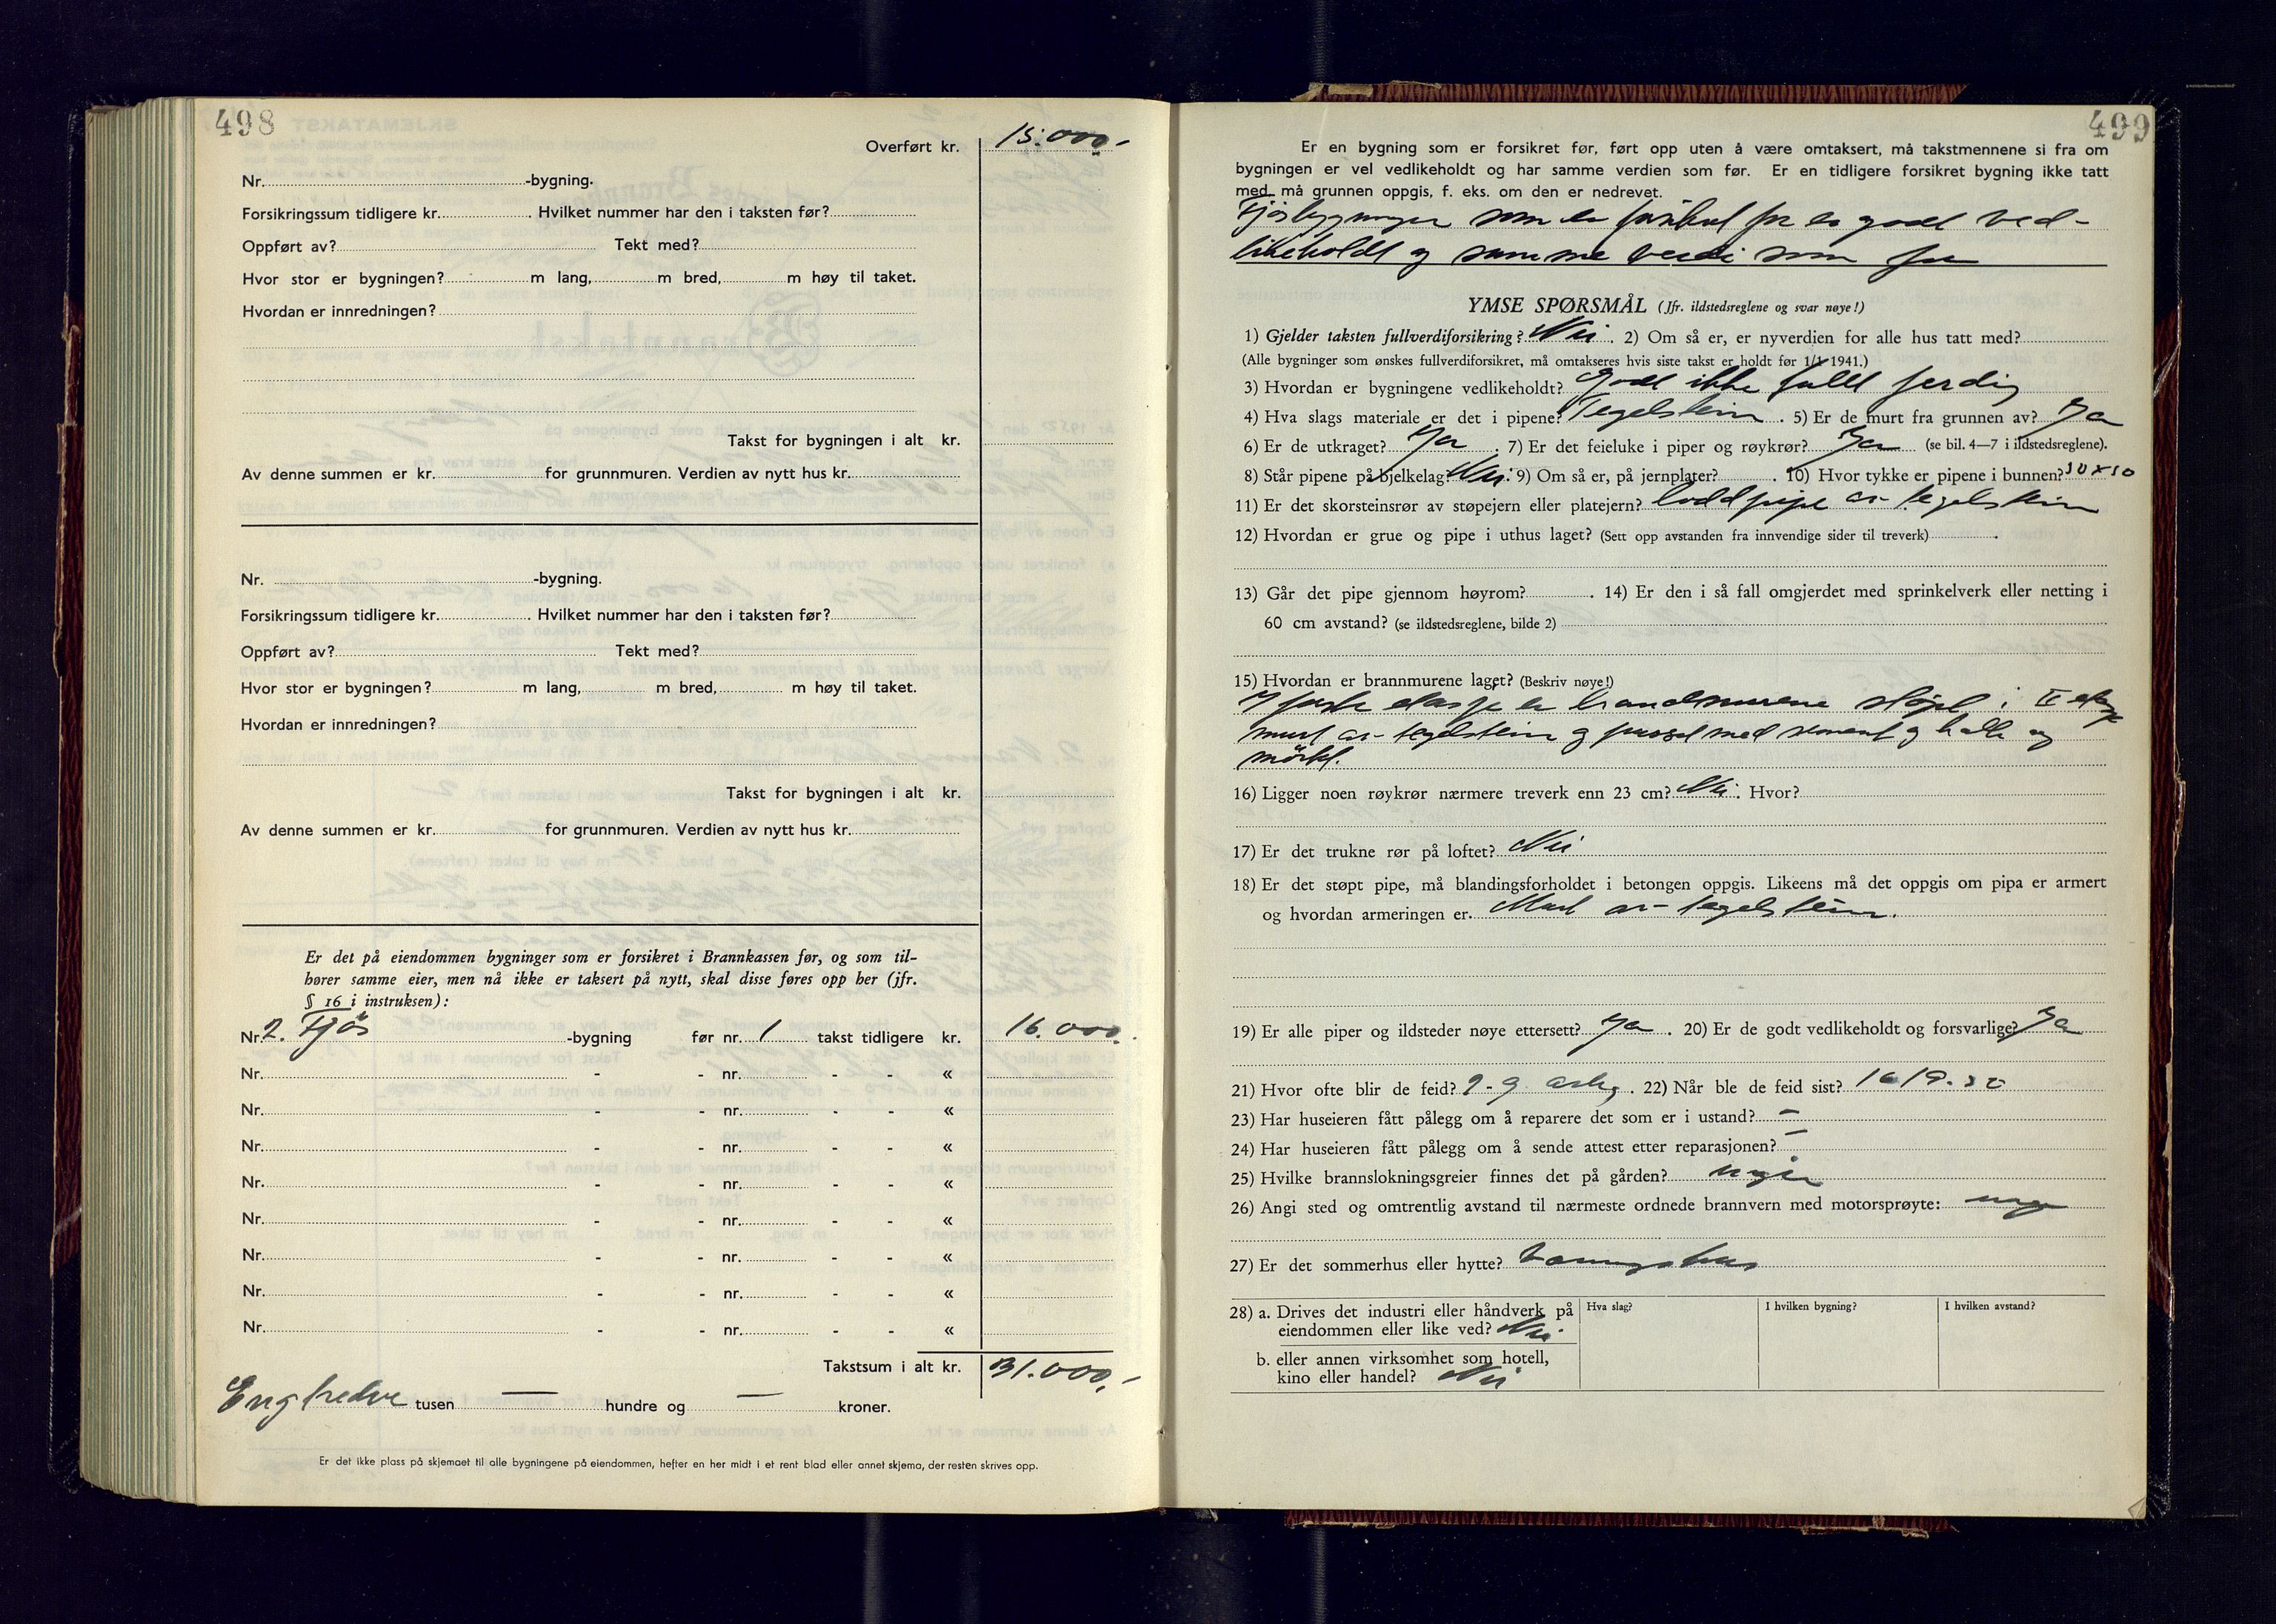 498
Overført kr. 15.000,-
Nr. -bygning.
Forsikringssum tidligere kr. . Hvilket nummer har den i taksten før?
Oppført av? Tekt med?
Hvor stor er bygningen? m lang, m bred, m høy til taket.
Hvordan er innredningen?
Takst for bygningen i alt kr.
Av denne summen er kr. for grunnmuren. Verdien av nytt hus kr.
Nr. -bygning.
Forsikringssum tidligere kr. . Hvilket nummer har den i taksten før?
Oppført av? Tekt med?
Hvor stor er bygningen? m lang, m bred, m høy til taket.
Hvordan er innredningen?
Takst for bygningen i alt kr.
Av denne summen er kr. for grunnmuren. Verdien av nytt hus kr.
Er det på eiendommen bygninger som er forsikret i Brannkassen før, og som til-
hører samme eier, men nå ikke er taksert på nytt, skal disse føres opp her (jfr.
§ 16 i instruksen):
Nr. 2. Fjøs -bygning før nr. 1 takst tidligere kr. 16.000,
Nr. - - nr. - - «
Nr. - - nr. - - «
Nr. - - nr. - - «
Nr. - - nr. - - «
Nr. - - nr. - - «
Nr. - - nr. - - «
Nr. - - nr. - - «
Nr. - - nr. - - «
Takstsum i alt kr. 31.000,-
tusen — hundre og — kroner.
Er det ikke plass på skjemaet til alle bygningene på eiendommen, hefter en her midt i et rent blad eller annet skjema, der resten skrives opp.
499
Er en bygning som er forsikret før, ført opp uten å være omtaksert, må takstmennene si fra om
bygningen er vel vedlikeholdt og har samme verdien som før. Er en tidligere forsikret bygning ikke tatt
med, må grunnen oppgis, f. eks. om den er nedrevet.
Fjøsbygningen som er før er godt ved-
likeholdt og samme verdi som før
YMSE SPØRSMÅL (Jfr. ildstedsreglene og svar nøye!)
1) Gjelder taksten fullverdiforsikring? Nei. 2) Om så er, er nyverdien for alle hus tatt med?
(Alle bygninger som ønskes fullverdiforsikret, må omtakseres hvis siste takst er holdt før 1/1 1941.)
3) Hvordan er bygningene vedlikeholdt? Godt ikke fullt ferdig
4) Hva slags materiale er det i pipene? Tegelstein. 5) Er de murt fra grunnen av? Ja
6) Er de utkraget? Ja. 7) Er det feieluke i piper og røykrør? Ja (se bil. 4—7 i ildstedsreglene).
8) Står pipene på bjelkelag? Nei. 9) Om så er, på jernplater? . 10) Hvor tykke er pipene i bunnen?
11) Er det skorsteinsrør av støpejern eller platejern? loddpipe av tegelstein
12) Hvordan er grue og pipe i uthus laget? (Sett opp avstanden fra innvendige sider til treverk) .
13) Går det pipe gjennom høyrom? . 14) Er den i så fall omgjerdet med sprinkelverk eller netting i
60 cm avstand? (se ildstedsreglene, bilde 2)
15) Hvordan er brannmurene laget? (Beskriv nøye!)
I første etasje er brandmurene støpt i II etasje
murt av tegelstein og pusset med sement og kalk og
16) Ligger noen røykrør nærmere treverk enn 23 cm? Nei. Hvor?
17) Er det trukne rør på loftet? Nei
18) Er det støpt pipe, må blandingsforholdet i betongen oppgis. Likeens må det oppgis om pipa er armert
og hvordan armeringen er. Murt av tegelstein.
19) Er alle piper og ildsteder nøye ettersett? Ja. 20) Er de godt vedlikeholdt og forsvarlige? Ja
21) Hvor ofte blir de feid? 2 g årlig. 22) Når ble de feid sist?
23) Har huseieren fått pålegg om å reparere det som er i ustand? —
24) Har huseieren fått pålegg om å sende attest etter reparasjonen? —
25) Hvilke brannslokningsgreier finnes det på gården? ingen
26) Angi sted og omtrentlig avstand til nærmeste ordnede brannvern med motorsprøyte: ingen
27) Er det sommerhus eller hytte? Vaningshus
28) a. Drives det industri eller håndverk på
eiendommen eller like ved? Nei.
Hva slag?
I hvilken bygning?
I hvilken avstand?
b. eller annen virksomhet som hotell,
kino eller handel? Nei